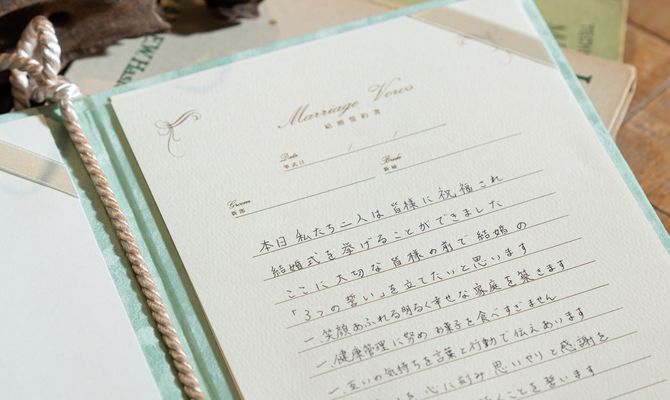 Marriage Vows
結婚誓約書
Date
挙式日 / /
Groom
新郎
Bride
新婦
本日 私たち二人は 皆様に 祝福され
結婚式を 挙げることが できました
ここに 大切な 皆様の 前で 結婚の
「3つの 誓い」を 立てたいと 思います
一. 笑顔あふれる 明るく 幸せな 家庭を 築きます
一. 健康管理に 努め お菓子を 食べすぎません
一. 互いの 気持ちを 言葉と 行動で 伝えあいます
を 心に 刻み 思いやりと 感謝を
くことを 誓います